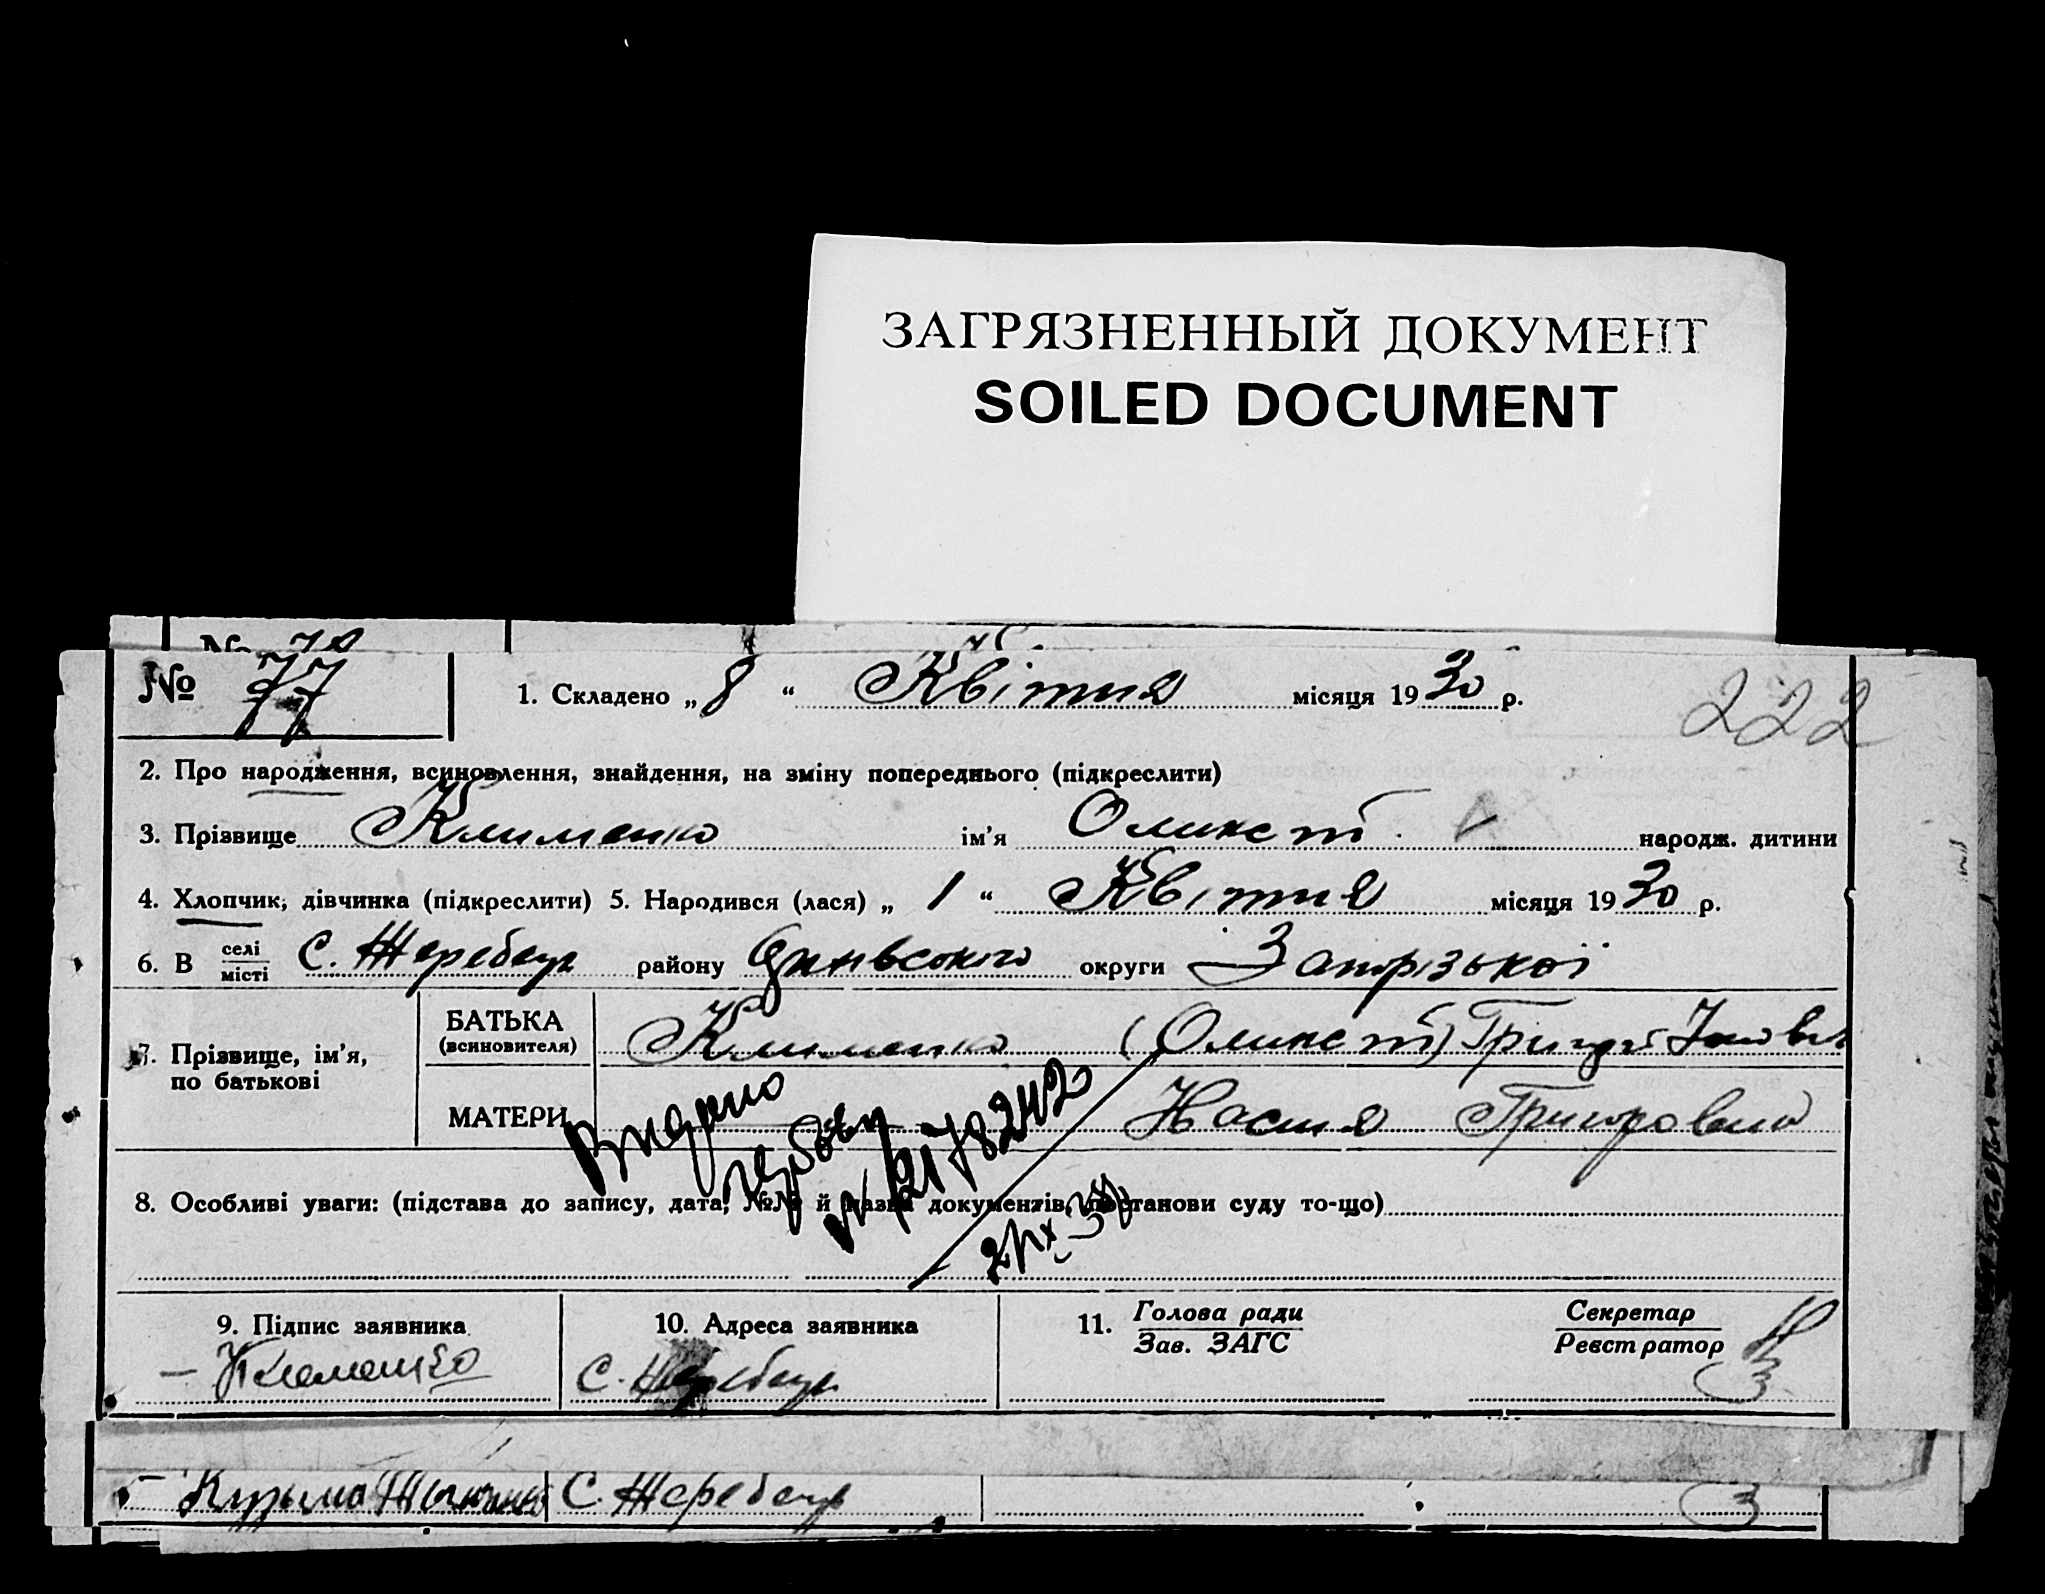 ЗАГРЯЗНЕННЫЙ ДОКУМЕНТ
SOILED DOCUMENT
№ 78
№ 77 1. Складено „ 8 “ Квітня місяця 1930 р.
222
2. Про народження, всиновлення, знайдення, на зміну попереднього (підкреслити)
3. Прізвище Клименко ім’я Оликст. народж. дитини
4. Хлопчик, дівчинка (підкреслити) 5. Народився (лася) „ 1 “ Квітня місяця 1930 р.
6. В селі/місті С. Жеребець району округи Запорізької
7. Прізвище, ім’я, по батькові
БАТЬКА (всиновителя) Клименко (Оликст) Григорі
МАТЕРИ Настя Григоровна
Видано
8. Особливі уваги: (підстава до запису, дата, №№ й назва документів, постанови суду то-що)
9. Підпис заявника 10. Адреса заявника 11. Голова ради/Зав. ЗАГС Секретар/Реєстратор
Клеменко С. Жеребець З
Кузьма С. Жеребець З